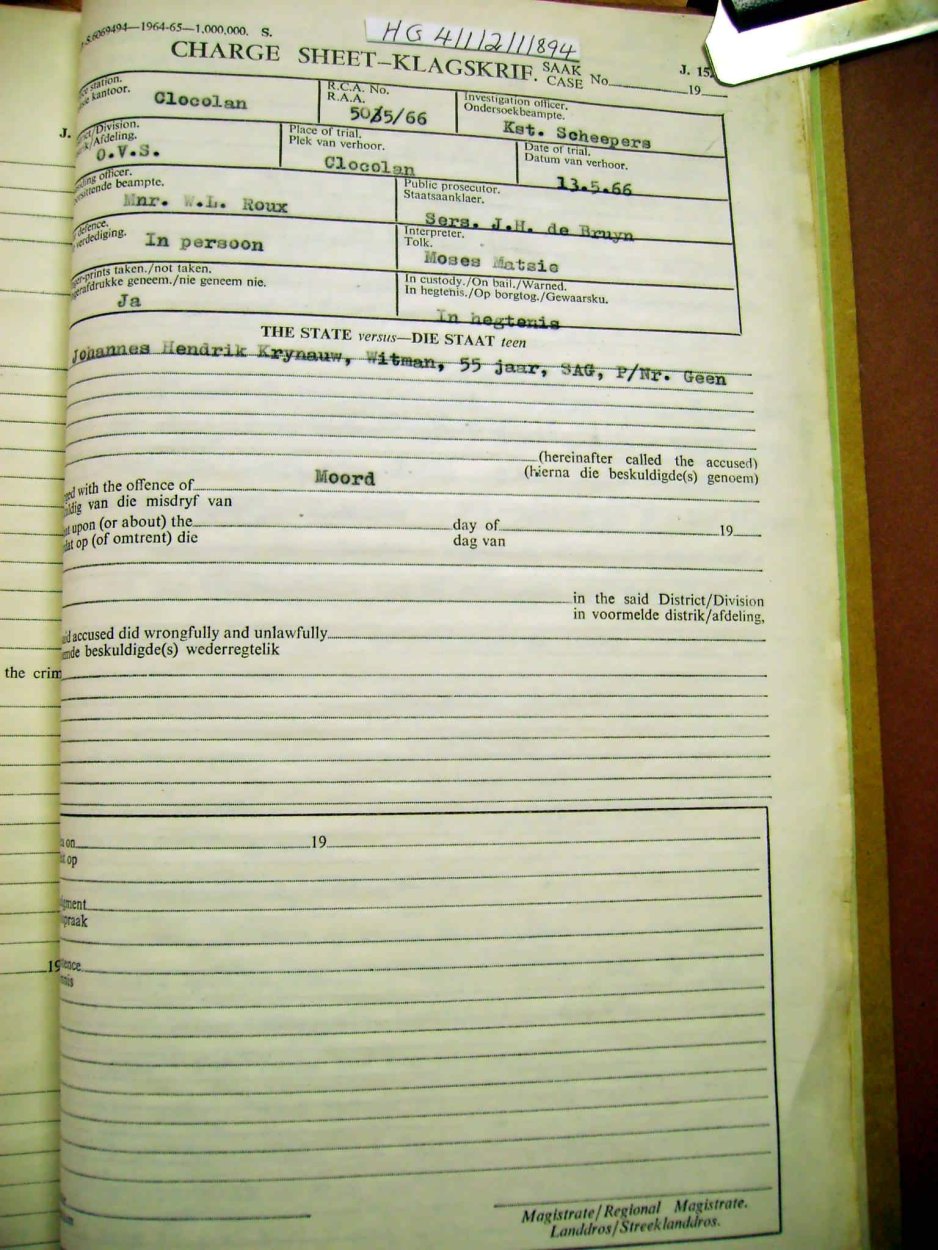 S.6069494—1964-65—1,000,000. S.
HG 4/1/2/1/894
CHARGE SHEET—KLAGSKRIF. SAAK CASE No. 19
J. 15
station.
kantoor.
Clocolan
R.C.A. No.
R.A.A.
5015/66
Investigation officer.
Ondersoekbeampte.
Kst. Scheepers
J.
/Division.
/Afdeling.
O.V.S.
Place of trial.
Plek van verhoor.
Clocolan
Date of trial.
Datum van verhoor.
13.5.66
ding officer.
sittende beampte.
Mnr. W.L. Roux
Public prosecutor.
Staatsaanklaer.
Sers. J.H. de Bruyn
defence.
verdediging.
In persoon
Interpreter.
Tolk.
Moses Matsie
er-prints taken./not taken.
erafdrukke geneem./nie geneem nie.
Ja
In custody./On bail./Warned.
In hegtenis./Op borgtog./Gewaarsku.
In hegtenis
THE STATE versus—DIE STAAT teen
Johannes Hendrik Krynauw, Witman, 55 jaar, SAG, P/Nr. Geen
(hereinafter called the accused)
(hierna die beskuldigde(s) genoem)
ged with the offence of Moord
ldig van die misdryf van
at upon (or about) the day of 19
dat op (of omtrent) die dag van
in the said District/Division
in voormelde distrik/afdeling,
id accused did wrongfully and unlawfully
mde beskuldigde(s) wederregtelik
the crim
on 19
op
gment
praak
19
tence
nis
Magistrate/Regional Magistrate.
Landdros/Streeklanddros.